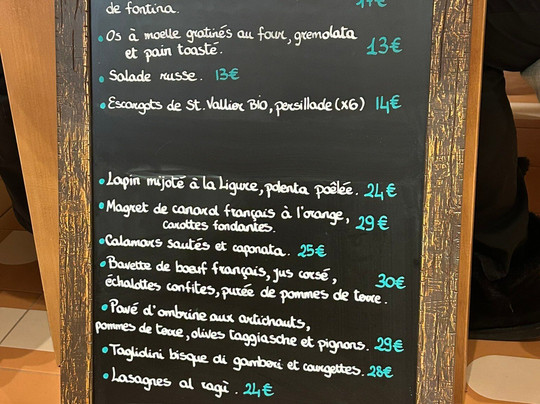 de fontina. 17€
• Os à moelle gratinés au four, gremolata
et pain toasté. 13€
• Salade russe. 13€
• Escargots de St. Vallier BIO, persillade (x6) 14€
• Lapin mijoté à la Ligure, polenta poêlée. 24€
• Magret de canard français à l'orange,
carottes fondantes. 29€
• Calamars sautés et caponata. 25€
• Bavette de bœuf français, jus corsé,
échalottes confites, purée de pommes de terre. 30€
• Pavé d'ombrine aux artichauts,
pommes de terre, olives taggiasche et pignons. 29€
• Taglidini bisque di gamberi et courgettes. 28€
• Lasagnes al ragì. 24€